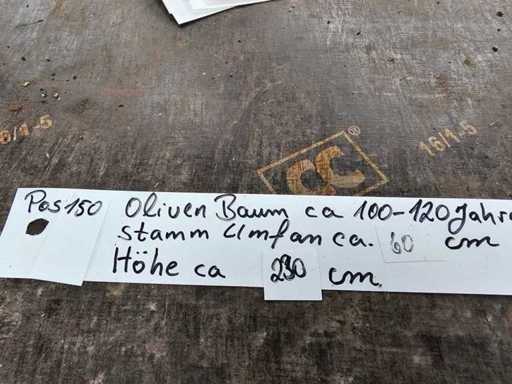 16/1-5
CC®
16/1-5
Pos150 Oliven Baum ca 100-120 Jahre
stamm Umfan ca. 60 cm
Höhe ca 230 cm.